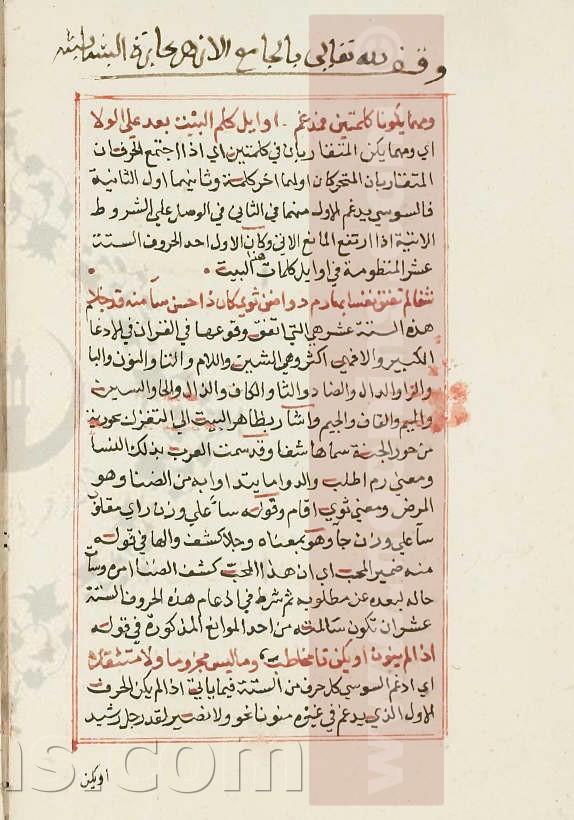 وقف لله تعالى بالجامع الازهر بحارة
ومهما يكونا كلمتين فمدغم اوايل كلم البيت بعد على الولا
اي ومهما يكن المتقاربان في كلمتين اي اذا اجتمع الحرفان
المتقاربان المتحركان اولهما اخر كلمة وثانيهما اول الثانية
فالسوسي يدغم الاول منهما في الثاني في الوصل على الشروط
الاتية اذا ارتفع المانع الاتي وكان الاول احد الحروف الستة
عشر المنظومة في اوايل كلمات هذا البيت
شفا لم تضق نفسا بها رم دوا ضن ثوى كان ذا حسن سأ منه قد جلا
هذه الستة عشر هي التي اتفق وقوعها في القران في الادغا
الكبير والا فهي اكثر وهي الشين واللام والتا والنون والبا
والرا والدال والضاد والثا والكاف والذال والحا والسين
والميم والقاف والجيم واشار بظاهر البيت الى التغزل بحورية
من حور الجنة سماها شفا وقد سمت العرب بذلك النسا
ومعنى رم اطلب والدوا ما يتداوا به من الضنا وهو
المرض ومعنى ثوى اقام وقوله سأ على وزن راي مقلوب
سأ على وزن جا وهو بمعناه وجلا كشف والها في قوله
منه ضمير المحب اي ان هذا المحب كشف الضنا امره وسأ
حاله لبعده عن مطلوبه ثم شرط في ادغام هذه الحروف الستة
عشر ان تكون سالمة من احد الموانع المذكورة في قوله
اذا لم ينون او يكن تا مخاطب وما ليس مجزوما ولا متثقلا
اي ادغم السوسي كل حرف من الستة فيما ياتي اذا لم يكن الحرف
الاول الذي يدغم في غيره منونا نحو ولا نصير لقد رجل رشيد
او يكن
ns.com